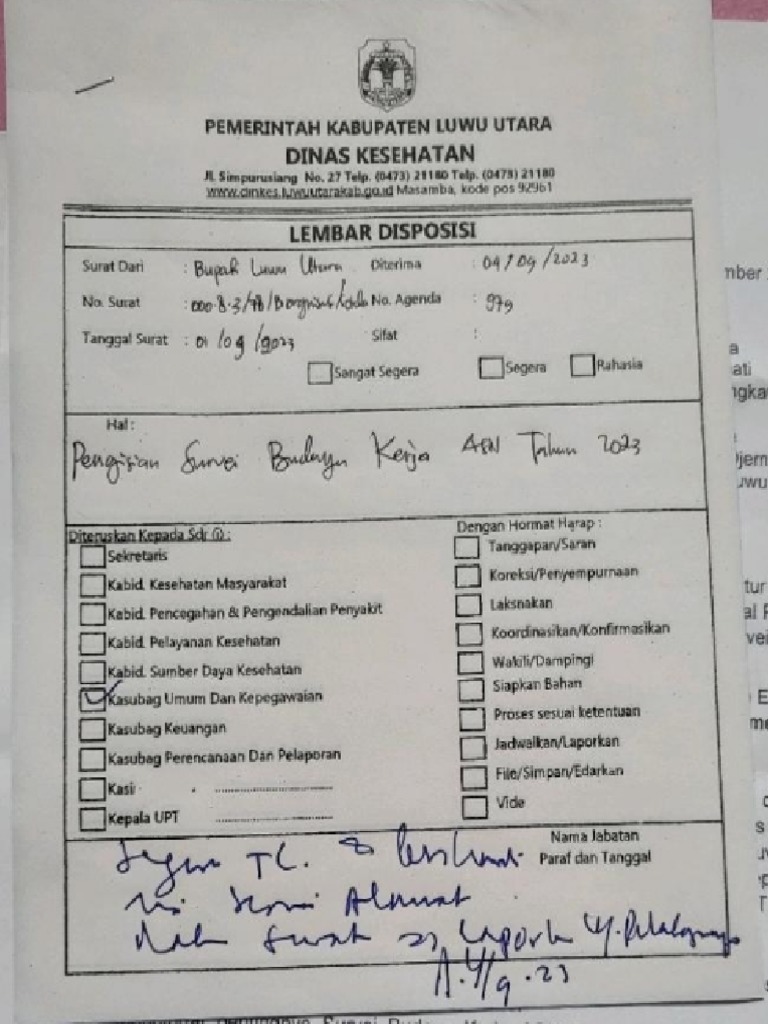 PEMERINTAH KABUPATEN LUWU UTARA
DINAS KESEHATAN
Jl. Simpurusiang No. 27 Telp. (0473) 21180 Telp. (0473) 21180
www.dinkes.luwuutarakab.go.id Masamba, kode pos 92961
LEMBAR DISPOSISI
Surat Dari : Bupati Luwu Utara Diterima : 04/09/2023
No. Surat : 000.8.3/ No. Agenda : 979
Tanggal Surat : 01/09/2023 Sifat :
Sangat Segera Segera Rahasia
Hal :
Pengisian Survei Budaya Kerja ASN Tahun 2023
Diteruskan Kepada Sdr (i) : Dengan Hormat Harap :
Sekretaris Tanggapan/Saran
Kabid. Kesehatan Masyarakat Koreksi/Penyempurnaan
Kabid. Pencegahan & Pengendalian Penyakit Laksnakan
Kabid. Pelayanan Kesehatan Koordinasikan/Konfirmasikan
Kabid. Sumber Daya Kesehatan Wakili/Dampingi
Kasubag Umum Dan Kepegawaian Siapkan Bahan
Kasubag Keuangan Proses sesuai ketentuan
Kasubag Perencanaan Dan Pelaporan Jadwalkan/Laporkan
Kasi File/Simpan/Edarkan
Kepala UPT Vide
Nama Jabatan
Paraf dan Tanggal
Segera TL.
Surat
4/9.23